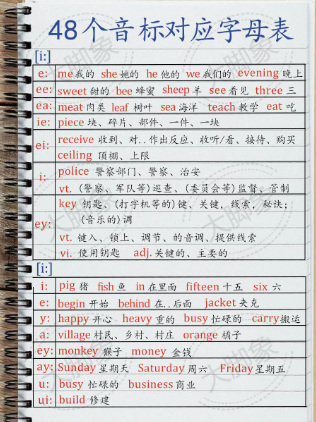 48个音标对应字母表
[i:]
e: me我的 she她的 he他的 we我们的 evening晚上
ee: sweet甜的 bee蜂蜜 sheep羊 see看见 three三
ea: meat肉类 leaf树叶 sea海洋 teach教学 eat吃
ie: piece块、碎片、部件、一件、一块
ei: receive收到、对..作出反应、收听/看、接待、购买
ceiling 顶棚、上限
i: police 警察部门、警察、治安
vt. (警察、军队等)巡查、(委员会等)监督、管制
ey: key 钥匙、(打字机等的)键、关键、线索，秘诀;
(音乐的)调
vt. 键入、锁上、调节、的音调、提供线索
vi. 使用钥匙 adj.关键的、主要的
[i:]
i: pig猪 fish鱼 in在里面 fifteen十五 six六
e: begin开始 behind在..后面 jacket夹克
y: happy开心 heavy重的 busy忙碌的 carry搬运
a: village村民、乡村、村庄 orange橘子
ey: monkey猴子 money金钱
ay: Sunday星期天 Saturday周六 Friday星期五
u: busy忙碌的 business商业
ui: build修建
大脚象